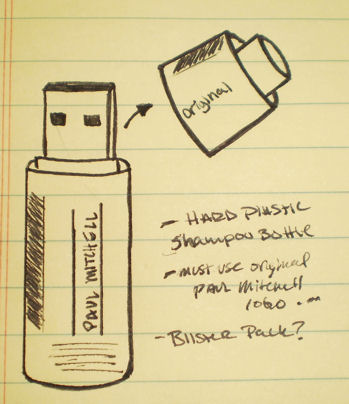 original
PAUL MITCHELL
- HARD PLASTIC
Shampoo Bottle
- must use original
PAUL Mitchell
logo.
- Blister Pack?